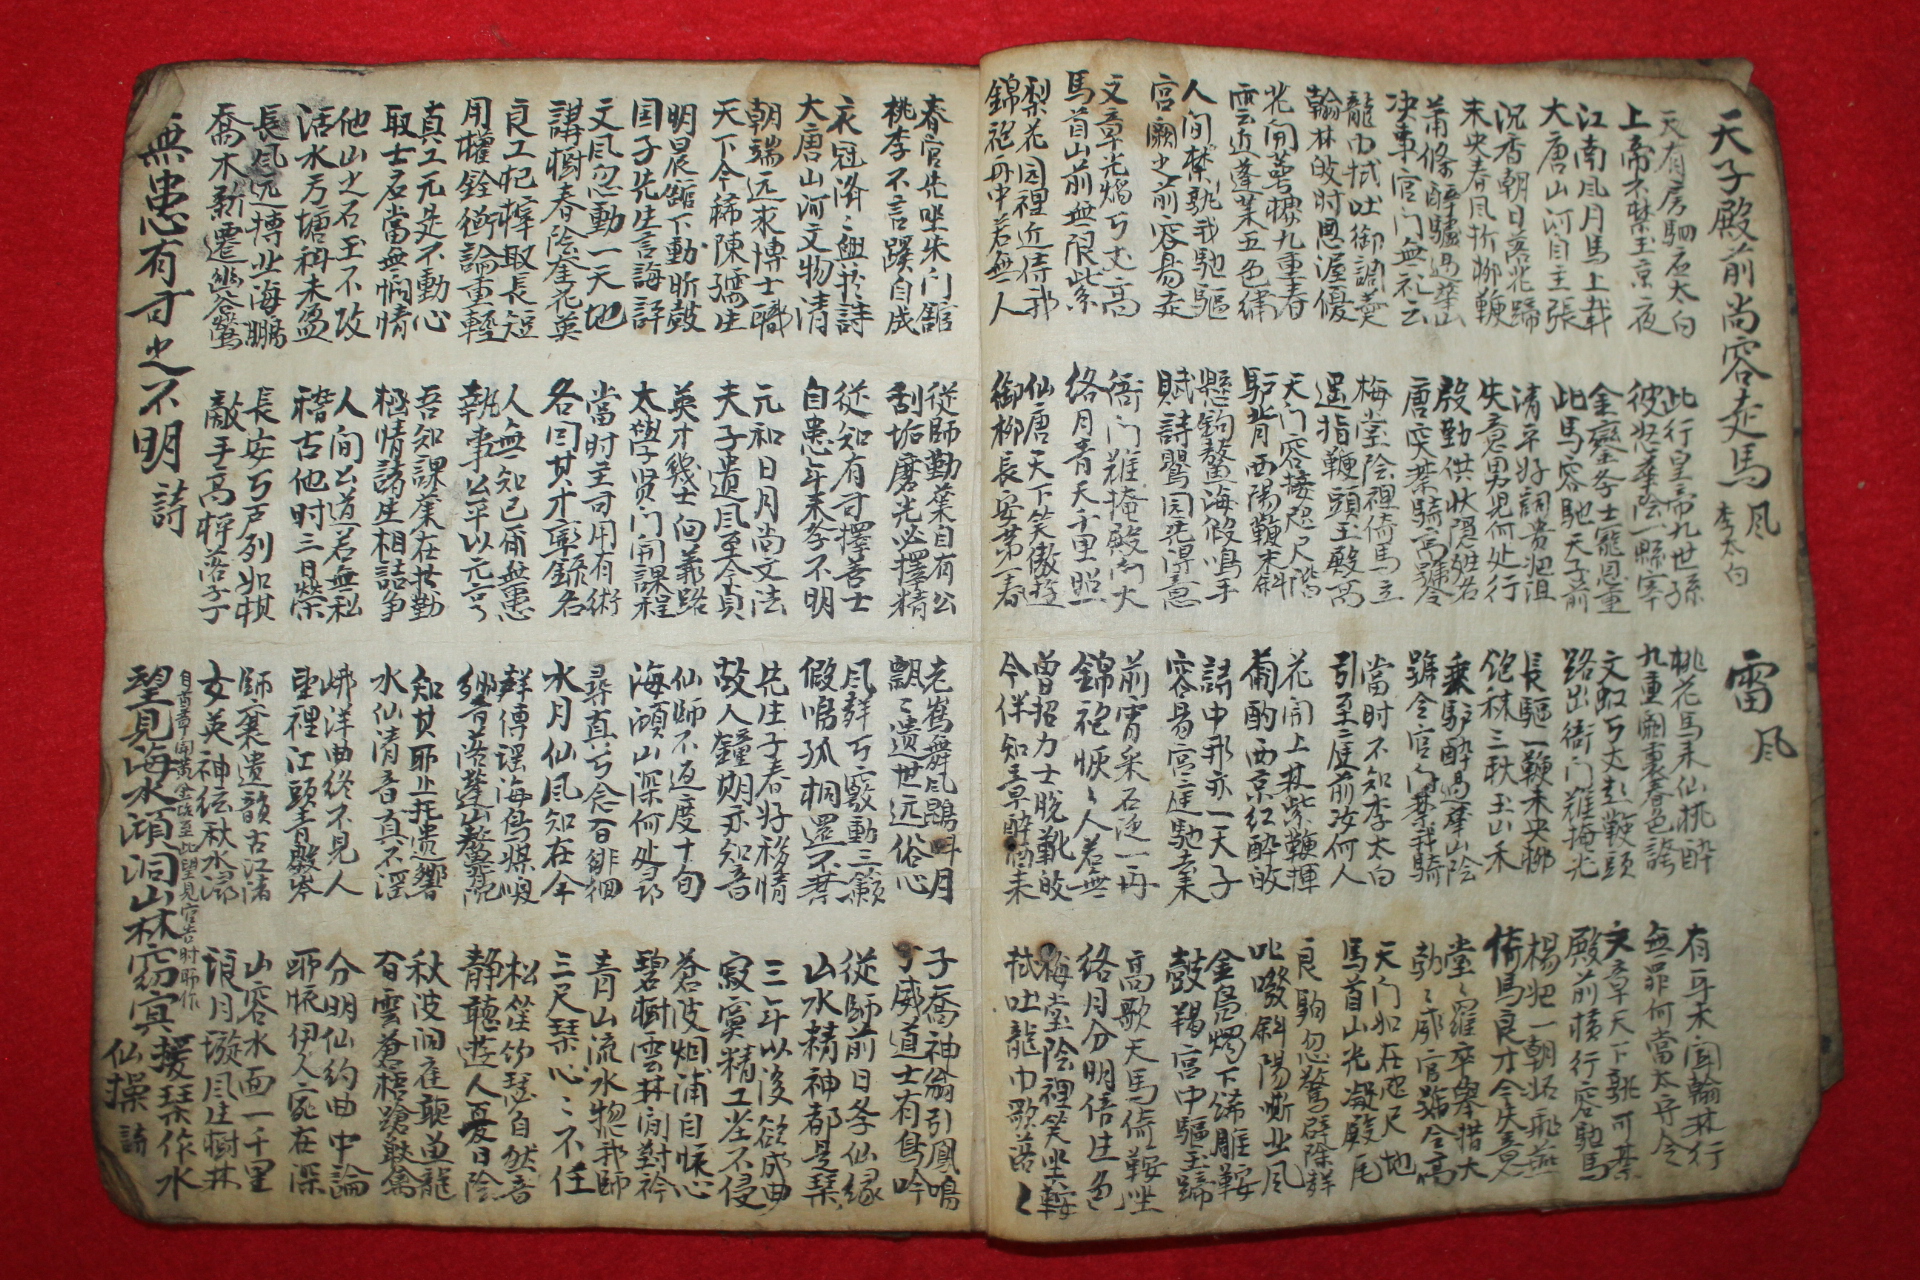 天子殿前尚容走馬 風 李太白
天有房駟臣太白
上帝不禁玉京夜
江南風月馬上載
大唐山河自主張
沉香朝日落花蹄
未央春風折柳鞭
蕭條醉驢過華山
决事官门無礼云
龍巾拭吐御調羹
翰林皎时恩渥優
花開萼樓九重春
雲近蓬萊五色繡
人間禁孰我馳驅
宮闕之前容易走
文章光焰万丈高
馬首山前無限紫
梨花园裡近侍我
錦袍再中若無人
此行皇帝九世孫
彼妃華陰一縣宰
金鑾学士寵恩重
此馬容馳天子前
清平好詞贵妃沮
失意男児何处行
殷勤供状隠姓名
唐突禁騎高號令
梅堂陰裡倚馬立
遥指鞭頭玉殿高
天门容接咫尺階
驴背西陽鞭末斜
懸鉤鰲海假鳴手
賦詩鸎园先得意
衙门誰掩殿门大
洛月青天千里照
仙唐天下笑傲遊
御柳長安第一春
雷風
桃花馬来仙桃醉
九重闕裏春色謠
文虹万丈 鞍頭
路出衙门誰掩光
長驅一鞭未央柳
飽秣三秋玉山禾
乗驴醉過華山陰
雖令官门禁我騎
當时不知李太白
引至庭前汝何人
花開上林紫鞭揮
葡酌西京红醉皎
詩中那亦一天子
容易宫庭馳去来
前宵采石泛一再
錦袍怳々人若無
曾招力士脱靴皎
今伴知章醉酒来
有耳未闻翰林行
無罪何當太守令
文章天下孰可禁
殿前横行容馳馬
楊妃一朝妬飛燕
倚馬良才今失意
堂々羅卒舉措大
勃々威官號令高
天门如在咫尺地
馬首山光凝殿尾
良駒忽驚辟除群
叱 斜陽嘶北風
金鳥燭下繡雕鞍
鼓羯宮中驅玉蹄
高歌天馬倚鞍坐
洛月分明倍生色
梅堂陰裡笑坐鞍
拭吐龍巾歌落々
春官先坐朱门館
桃李不言蹊自成
衣冠濟々盤於詩
大唐山河文物清
朝端远求博士職
天下今稀陳孺生
明晨舘下動昕鼓
国子先生言誨諄
文風忽動一天地
講樹春陰奎花英
良工杞梓取長短
用權銓衡論重輕
真工元是不動心
取士君當無惘情
他山之石玉不攻
活水方塘科未盈
長風远博北海鵬
喬木新遷幽谷鶯
從師勤業自有公
刮垢磨光必擇精
從知有司擇善士
自患年来学不明
元和日月尚文法
夫子遺風至今貞
英才幾士間義路
太學贤门開課程
當时主司用有術
各问其才率録名
人無知己爾無患
執事公平以元亨
吾知課業在於勤
極情諸生相詰争
人間公道若無私
稽古他时三日榮
長安万户列如棋
敵手高枰落子丁
無患有司之不明 詩
老鶴無風鵾叫月
飄々遗世远俗心
風群万竅動三籁
假鳴孤桐還不禁
先生子春好移情
故人鐘期亦知音
仙師不返度十旬
海澒山深何处尋
尋真幾念百徘徊
水月仙風知在今
群傳謡海鳥媒順
響落蓬山 靈沈
知其耶止托遗響
水仙清音真不淫
娜洋曲終不見人
望裡江頭青數岑
師襄遗韻古江渚
女英神絃秋水潯
子喬神翁引鳳鳴
丁威道士有鳥吟
從師前日学仙缘
山水精神都是琴
三年以後欲成曲
寂寞精工坐不侵
蒼波烟浦自懷心
碧樹雲林闲對衿
青山流水惣我師
三尺琴心心不任
松笙竹瑟自然音
静聴遊人憂日陰
秋波洞庭聽魚龍
百雲蒼梧蹌獸禽
分明仙約曲中論
耶懷伊人宛在深
山容水面一千里
浪月璇風生樹林
自首章開黃金 至此望見宫音时耶作
望見海水澒洞山林窈冥援琴作水仙操 詩